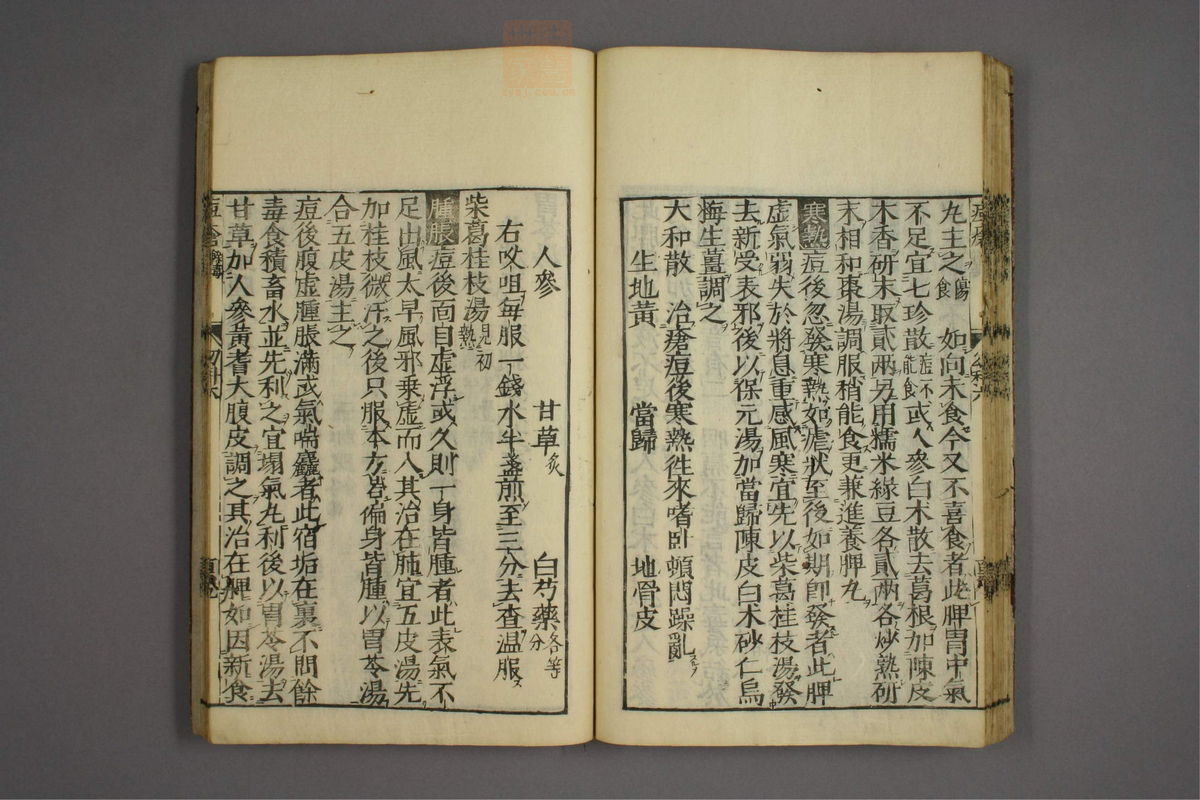 丸主之傷食 如向未食今又不喜食者此脾胃中氣
不足宜七珍散痘不能食或人參白朮散去葛根加陳皮
木香研末取貳兩另用糯米綠豆各貳兩各炒熟研
末相和棗湯調服稍能食更兼進養脾丸
寒熱痘後忽發寒熱如瘧狀至後如期即發者此脾
虛氣弱失於將息重感風寒宜先以柴葛桂枝湯發
去新受表邪後以保元湯加當歸陳皮白朮砂仁烏
梅生薑調之
大和散 治瘡痘後寒熱徃來嗜卧煩悶躁亂
生地黃 當歸 地骨皮
人參 甘草炙 白芍藥各等分
右㕮咀每服一錢水半盞煎至三分去查温服
柴葛桂枝湯見初熱
腫脹痘後面目虛浮或久則一身皆腫者此表氣不
足出風太早風邪乘虛而入其治在肺宜五皮湯先
加桂枝微汗之後只服本方若偏身皆腫以胃苓湯
合五皮湯主之
痘後腹虛腫脹滿或氣喘麤者此宿垢在裏不問餘
毒食積畜水並先利之宜塌氣丸利後以胃苓湯去
甘草加人參黃耆大腹皮調之其治在脾如因新食
痘瘡